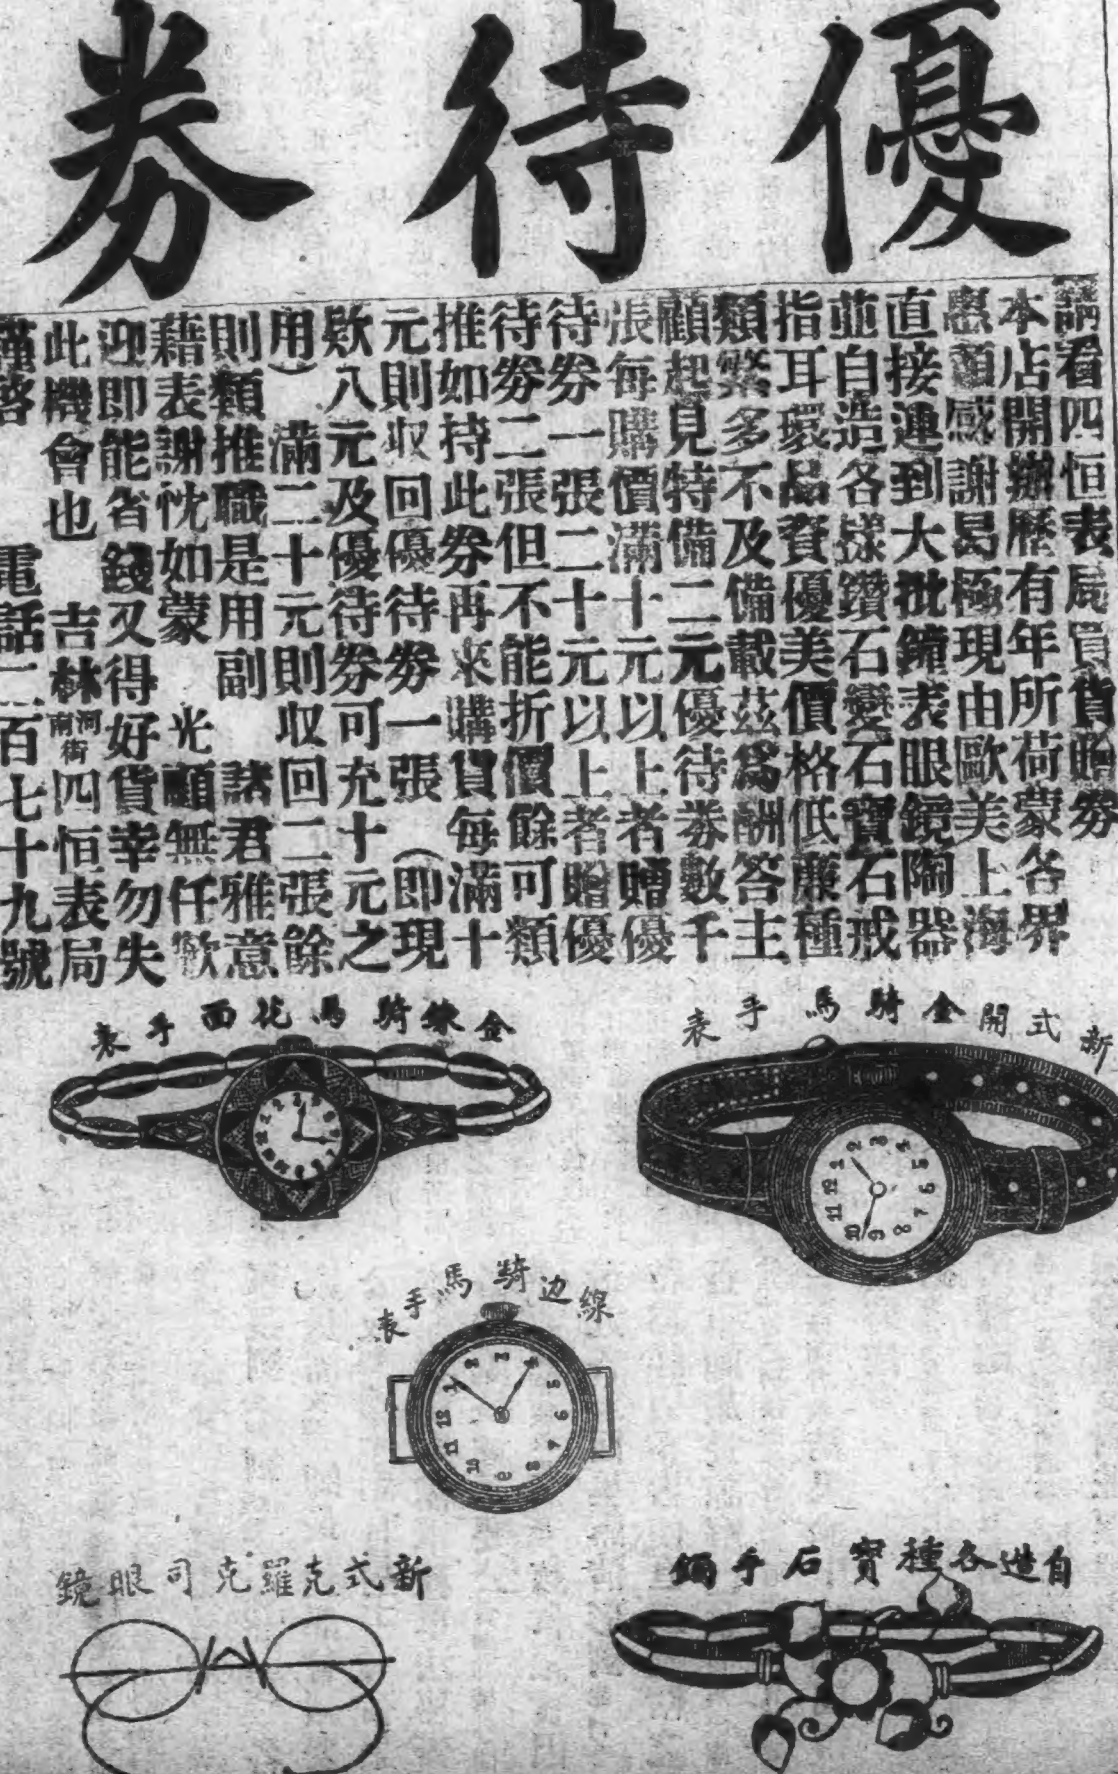 優待券
請看四恒表局買貨贈券
本店開辦歷有年所荷蒙各界
惠顧感謝曷極現由歐美上海
直接運到大批鐘表眼鏡陶器
並自造各樣鑽石變石寶石戒
指耳環品資優美價格低廉種
類繁多不及備載茲爲酬答主
顧起見特備二元優待券數千
張每購價滿十元以上者贈優
待券一張二十元以上者贈優
待券二張但不能折價餘可類
推如持此券再來購貨每滿十
元則収回優待券一張（即現
欵八元及優待券可充十元之
用）滿二十元則収回二張餘
則類推職是用副 諸君雅意
藉表謝忱如蒙 光顧無任歡
迎即能省錢又得好貨幸勿失
此機會也 吉林河南街四恒表局
謹啓 電話二百七十九號
新式開金騎馬手表
金鍊騎馬花面手表
線边騎馬手表
自造各種寶石手鐲
新式克羅克司眼鏡